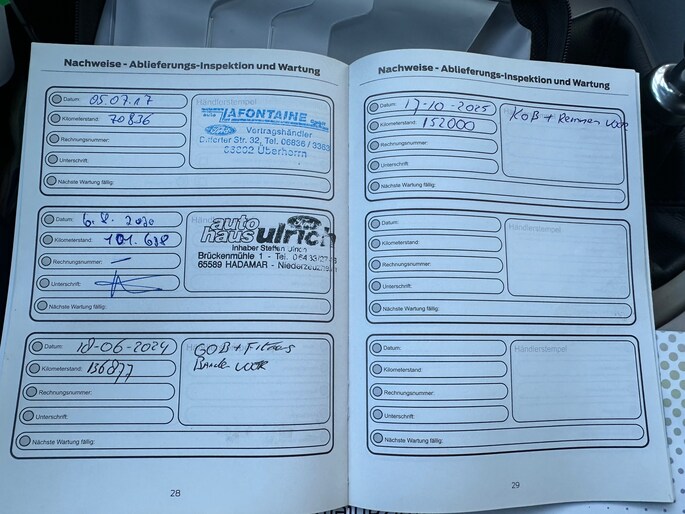 Nachweise - Ablieferungs-Inspektion und Wartung
Datum: 05.07.17
Kilometerstand: 70836
Rechnungsnummer:
Unterschrift:
Nächste Wartung fällig:
Händlerstempel
LAFONTAINE
Ford Vertragshändler
Differter Str. 32, Tel. 06836 /
66802 Überherrn
Datum: 6.8. 2020
Kilometerstand: 101.698
Rechnungsnummer: —
Unterschrift:
Nächste Wartung fällig:
autohaus ulrich
Ford
Inhaber Steffen Ulrich
Brückenmühle 1 - Tel.
65589 HADAMAR - Niederzeuzheim
Datum: 18-06-2024
Kilometerstand: 136877
Rechnungsnummer:
Unterschrift:
Nächste Wartung fällig:
Händlerstempel
GOB + Filters
Banden
28
Nachweise - Ablieferungs-Inspektion und Wartung
Datum: 17-10-2025
Kilometerstand: 152000
Rechnungsnummer:
Unterschrift:
Nächste Wartung fällig:
Händlerstempel
KOB + Remmen voor
Datum:
Kilometerstand:
Rechnungsnummer:
Unterschrift:
Nächste Wartung fällig:
Händlerstempel
Datum:
Kilometerstand:
Rechnungsnummer:
Unterschrift:
Nächste Wartung fällig:
Händlerstempel
29